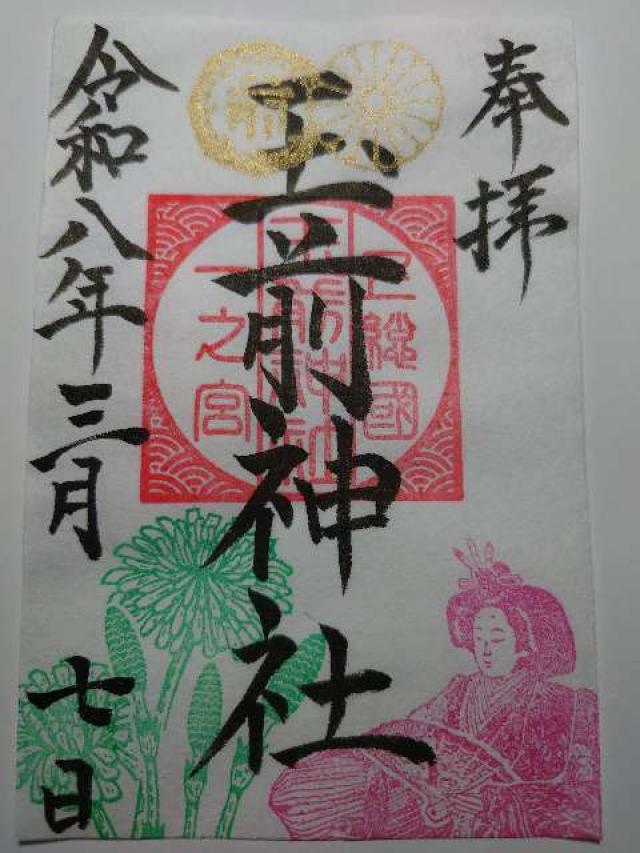 奉拝
玉前神社
上総國
玉前神社
一之宮
令和八年三月
七日